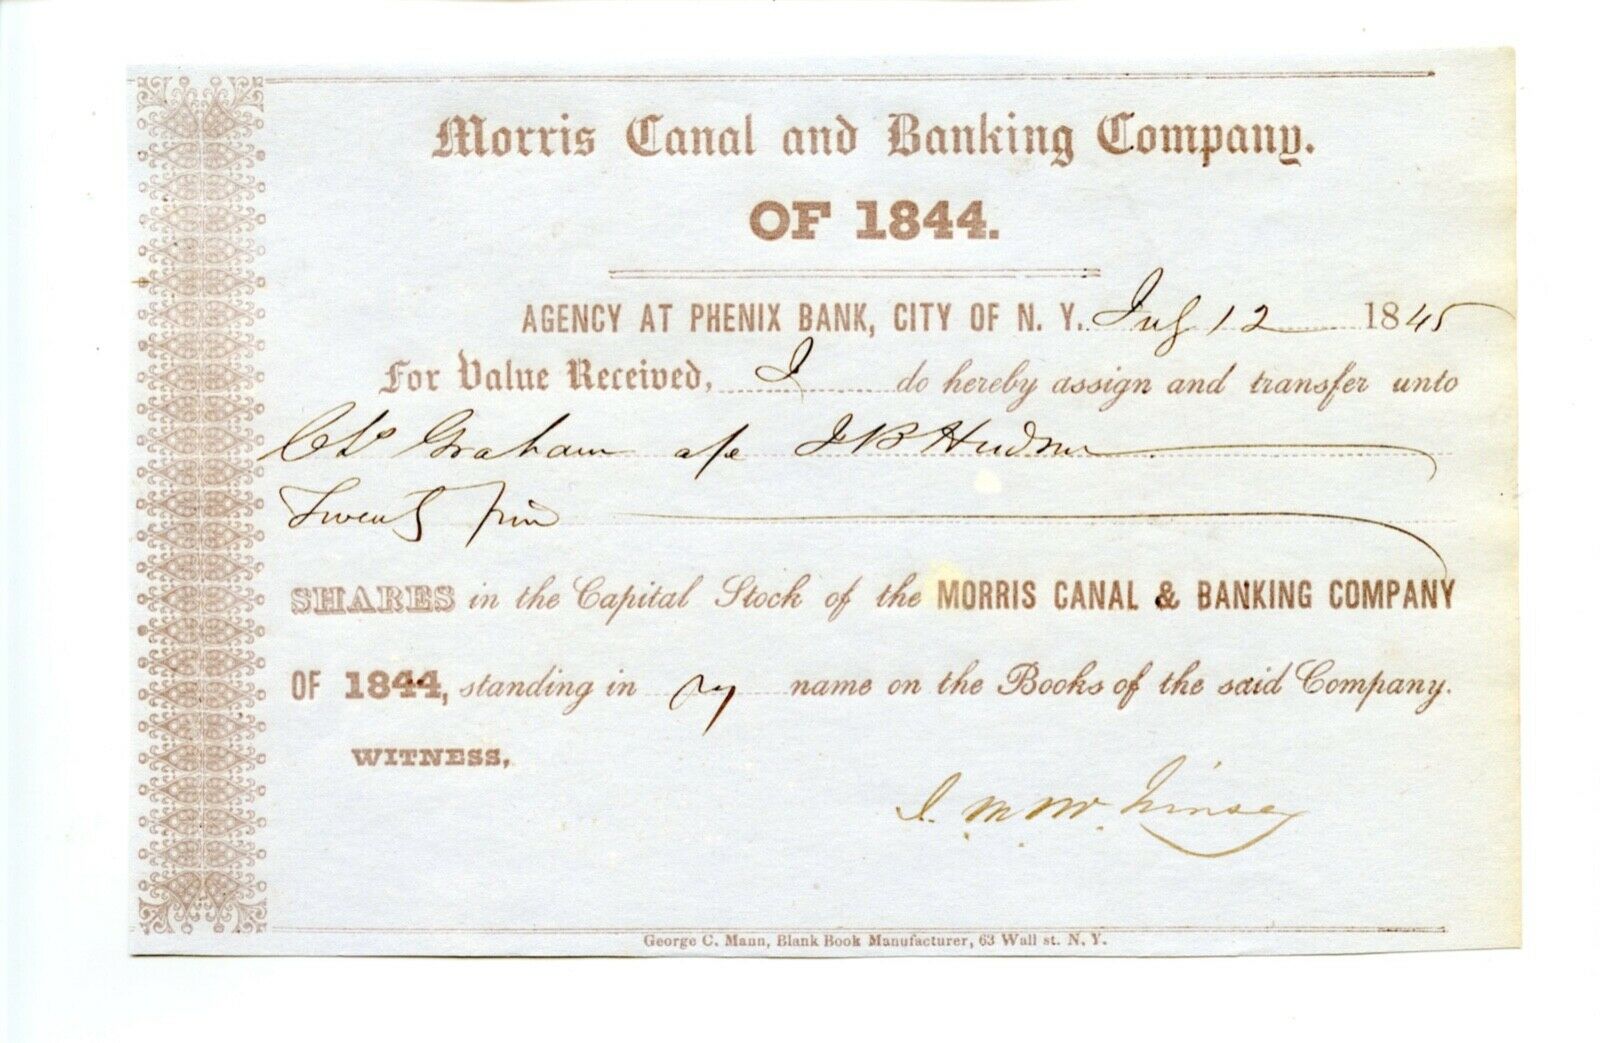 Morris Canal and Banking Company.
OF 1844.
AGENCY AT PHENIX BANK, CITY OF N. Y. July 12 1845
For Value Received, I do hereby assign and transfer unto
Graham a/c J B Hudson
Twenty Five
SHARES in the Capital Stock of the MORRIS CANAL & BANKING COMPANY
OF 1844, standing in my name on the Books of the said Company.
WITNESS,
George C. Mann, Blank Book Manufacturer, 63 Wall st. N. Y.